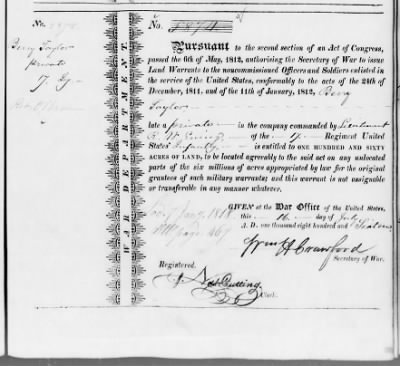 No.
Benj Taylor
private
7. Gy
WAR DEPARTMENT.
No.
Pursuant to the second section of an Act of Congress,
passed the 6th of May, 1812, authorising the Secretary of War to issue
Land Warrants to the noncommissioned Officers and Soldiers enlisted in
the service of the United States, conformably to the acts of the 24th of
December, 1811, and of the 11th of January, 1812, Benj
Taylor
late a private in the company commanded by Lieutenant
of the Regiment United
States' Infantry is entitled to ONE HUNDRED AND SIXTY
ACRES OF LAND, to be located agreeably to the said act on any unlocated
parts of the six millions of acres appropriated by law for the original
grantees of such military warrants; and this warrant is not assignable
or transferable in any manner whatever.
GIVEN at the War Office of the United States,
this 16 day of July
A. D. one thousand eight hundred and Sixteen
Wm H Crawford
Secretary of War.
Registered.
Clerk.